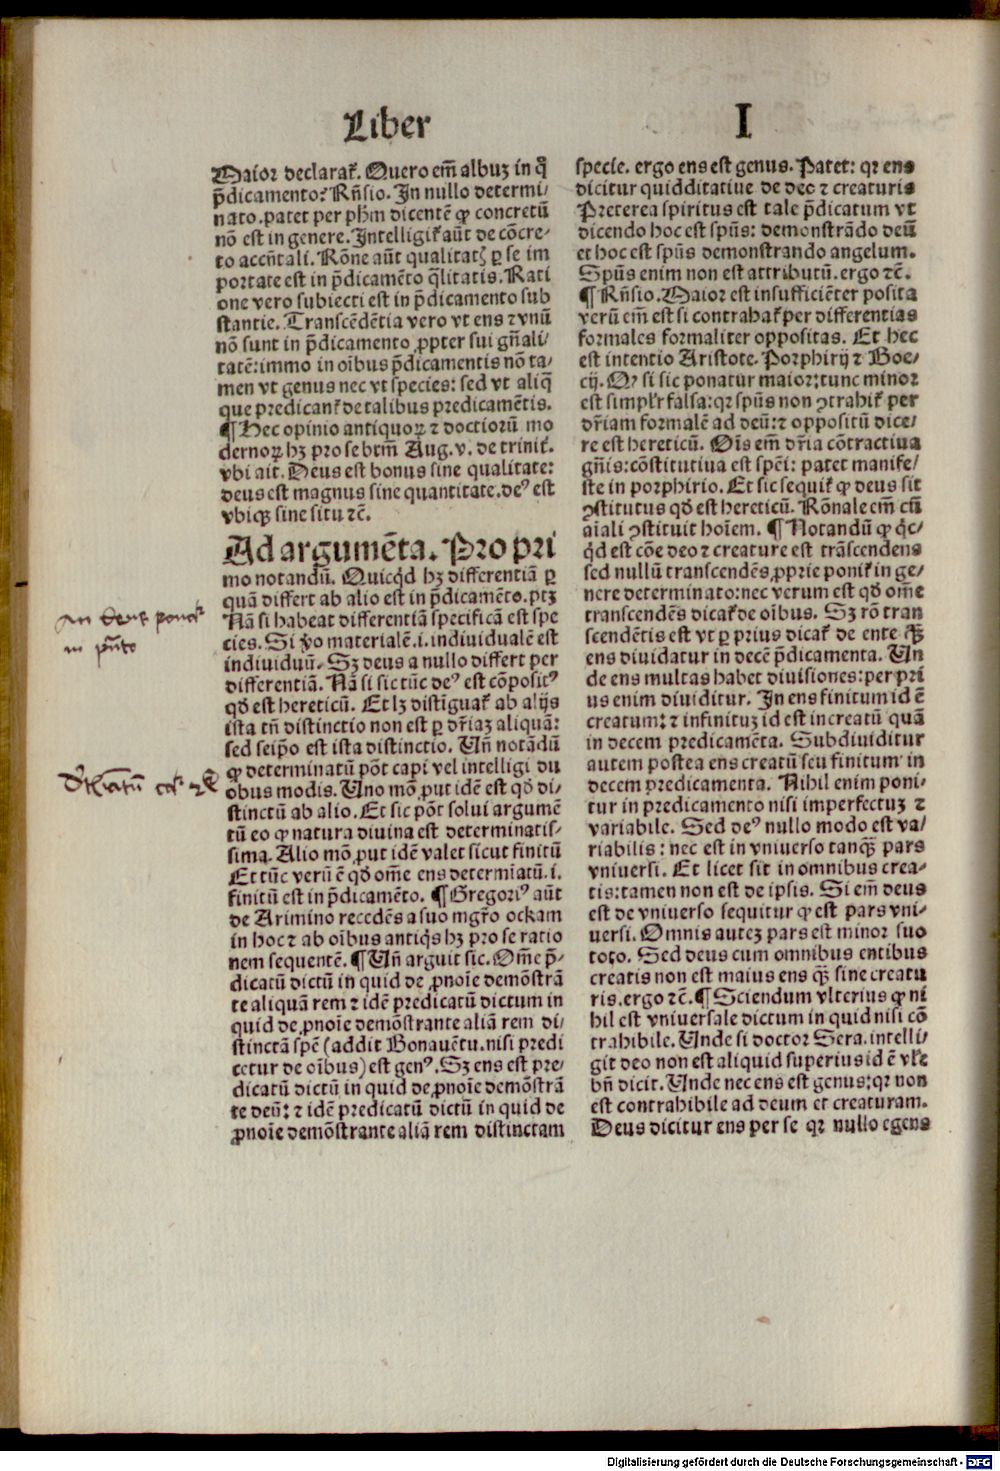 Liber
I
Maior declarat̃. Quero em̃ albuꝫ in q̃
p̃dicamento? Rñsio. In nullo determi-
nato. patet per pħm dicentẽ ꝙ concretũ
nõ est in genere. Intelligit̃ aũt de cõcre-
to accñtali. Rõne aũt qualitatꝭ ꝑ se im
portate est in p̃dicamẽto q̃litatis. Rati
one vero subiecti est in p̃dicamento sub
stantie. Transcẽdẽtia vero vt ens ⁊ vnũ
nõ sunt in p̃dicamento ꝓpter sui gñali/
tatẽ: immo in oĩbus p̃dicamentis nõ ta-
men vt genus nec vt species: sed vt aliq̃
que predicant̃ de talibus predicamẽtis.
¶ Hec opinio antiquoꝝ ⁊ doctiorũ mo
dernoꝝ hꝫ pro se btm̃ Aug. v. de trinit̃.
vbi ait. Deus est bonus sine qualitate:
deus est magnus sine quantitate. deꝰ est
vbiqꝫ sine situ ⁊c̃.
Ad argumẽta. Pro pri
mo notandũ. Quicq̃d hꝫ differentiã ꝑ
quã differt ab alio est in p̃dicamẽto. ptꝫ
Nã si habeat differentiã specificã est spe
cies. Si ṽo materialẽ .i. indiuidualẽ est
indiuiduũ. Sꝫ deus a nullo differt per
differentiã. Nã si sic tũc deꝰ est cõpositꝰ
qđ est hereticũ. Et lꝫ distĩguat̃ ab alijs
ista tñ distinctio non est ꝑ dr̃iaꝫ aliquã:
sed seip̃o est ista distinctio. Vñ notãdũ
ꝙ determinatũ põt capi vel intelligi du
obus modis. Uno mõ ꝓut idẽ est qđ di-
stinctũ ab alio. Et sic põt solui argumẽ
tũ eo ꝙ natura diuina est determinatis-
sima. Alio mõ ꝓut idẽ valet sicut finitũ
Et tũc verũ ẽ qđ om̃e ens determiatũ .i.
finitũ est in p̃dicamẽto. ¶ Gregoriꝰ aũt
de Arimino recedẽs a suo mgr̃o ockam
in hoc ⁊ ab oĩbus antiq̃s hꝫ pro se ratio
nem sequentẽ. ¶ Vñ arguit sic. Om̃e p̃-
dicatũ dictũ in quid de ꝓnoĩe demõstrã
te aliquã rem ⁊ idẽ predicatũ dictum in
quid de ꝓnoĩe demõstrante aliã rem di/
stinctã spẽ (addit Bonauẽtu. nisi predi
cetur de oĩbus) est genꝰ. Sꝫ ens est pre-
dicatũ dictũ in quid de ꝓnoĩe demõstrã
te deũ: ⁊ idẽ predicatũ dictũ in quid de
ꝓnoĩe demõstrante aliã rem distinctam
specie. ergo ens est genus. Patet: qꝛ ens
dicitur quidditatiue de deo ⁊ creaturis
Preterea spiritus est tale p̃dicatum vt
dicendo hoc est spũs: demonstrãdo deũ
et hoc est spũs demonstrando angelum.
Spũs enim non est attributũ. ergo ⁊c̃.
¶ Rñsio. Maior est insufficiẽter posita
verũ em̃ est si contrahat̃ per differentias
formales formaliter oppositas. Et hec
est intentio Aristote. Porphirij ⁊ Boe-
cij. Qꝛ si sic ponatur maior: tunc minor
est simpl̃r falsa: qꝛ spũs non ꝯtrahit̃ per
dr̃iam formalẽ ad deũ: ⁊ oppositũ dice-
re est hereticũ. Oĩs em̃ dr̃ia cõtractiua
gñis: cõstitutiua est spẽi: patet manife/
ste in porphirio. Et sic sequit̃ ꝙ deus sit
ꝯstitutus qđ est hereticũ. Rõnale em̃ cũ
aĩali ꝯstituit hoĩem. ¶ Notandũ ꝙ q̃c-
q̃d est cõe deo ⁊ creature est trãscendens
sed nullũ transcendẽs ꝓprie ponit̃ in ge/
nere determinato: nec verum est qđ om̃e
transcendẽs dicat̃ de oĩbus. Sꝫ rõ tran
scendẽtis est vt ꝑ prius dicat̃ de ente qꝫ̃
ens diuidatur in decẽ p̃dicamenta. Un
de ens multas habet diuisiones: per pri
us enim diuiditur. In ens finitum id ẽ
creatum: ⁊ infinituꝫ id est increatũ quã
in decem predicamẽta. Subdiuiditur
autem postea ens creatũ seu finitum in
decem predicamenta. Nihil enim poni-
tur in predicamento nisi imperfectuꝫ ⁊
variabile. Sed deꝰ nullo modo est va/
riabilis: nec est in vniuerso tanqꝫ̃ pars
vniuersi. Et licet sit in omnibus crea-
tis: tamen non est de ipsis. Si em̃ deus
est de vniuerso sequitur ꝙ est pars vni-
uersi. Omnis auteꝫ pars est minor suo
toto. Sed deus cum omnibus entibus
creatis non est maius ens qꝫ̃ sine creatu
ris. ergo ⁊c̃. ¶ Sciendum vlterius ꝙ ni
hil est vniuersale dictum in quid nisi cõ
trahibile. Unde si doctor Sera. intelli/
git deo non est aliquid superius id ẽ vl̃e
bñ dicit. Unde nec ens est genus: qꝛ non
est contrahibile ad deum et creaturam.
Deus dicitur ens per se qꝛ nullo egens
an deus ponat̃
in p̃nto
Digitalisierung gefördert durch die Deutsche Forschungsgemeinschaft - DFG